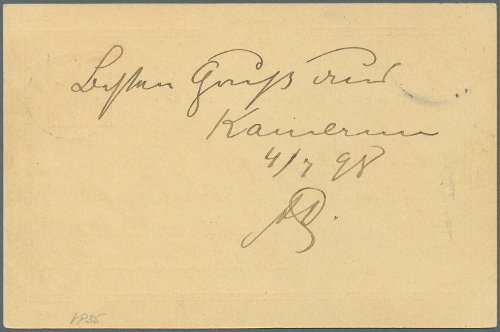 Besten Gruß aus
Kamerun
4/7 98